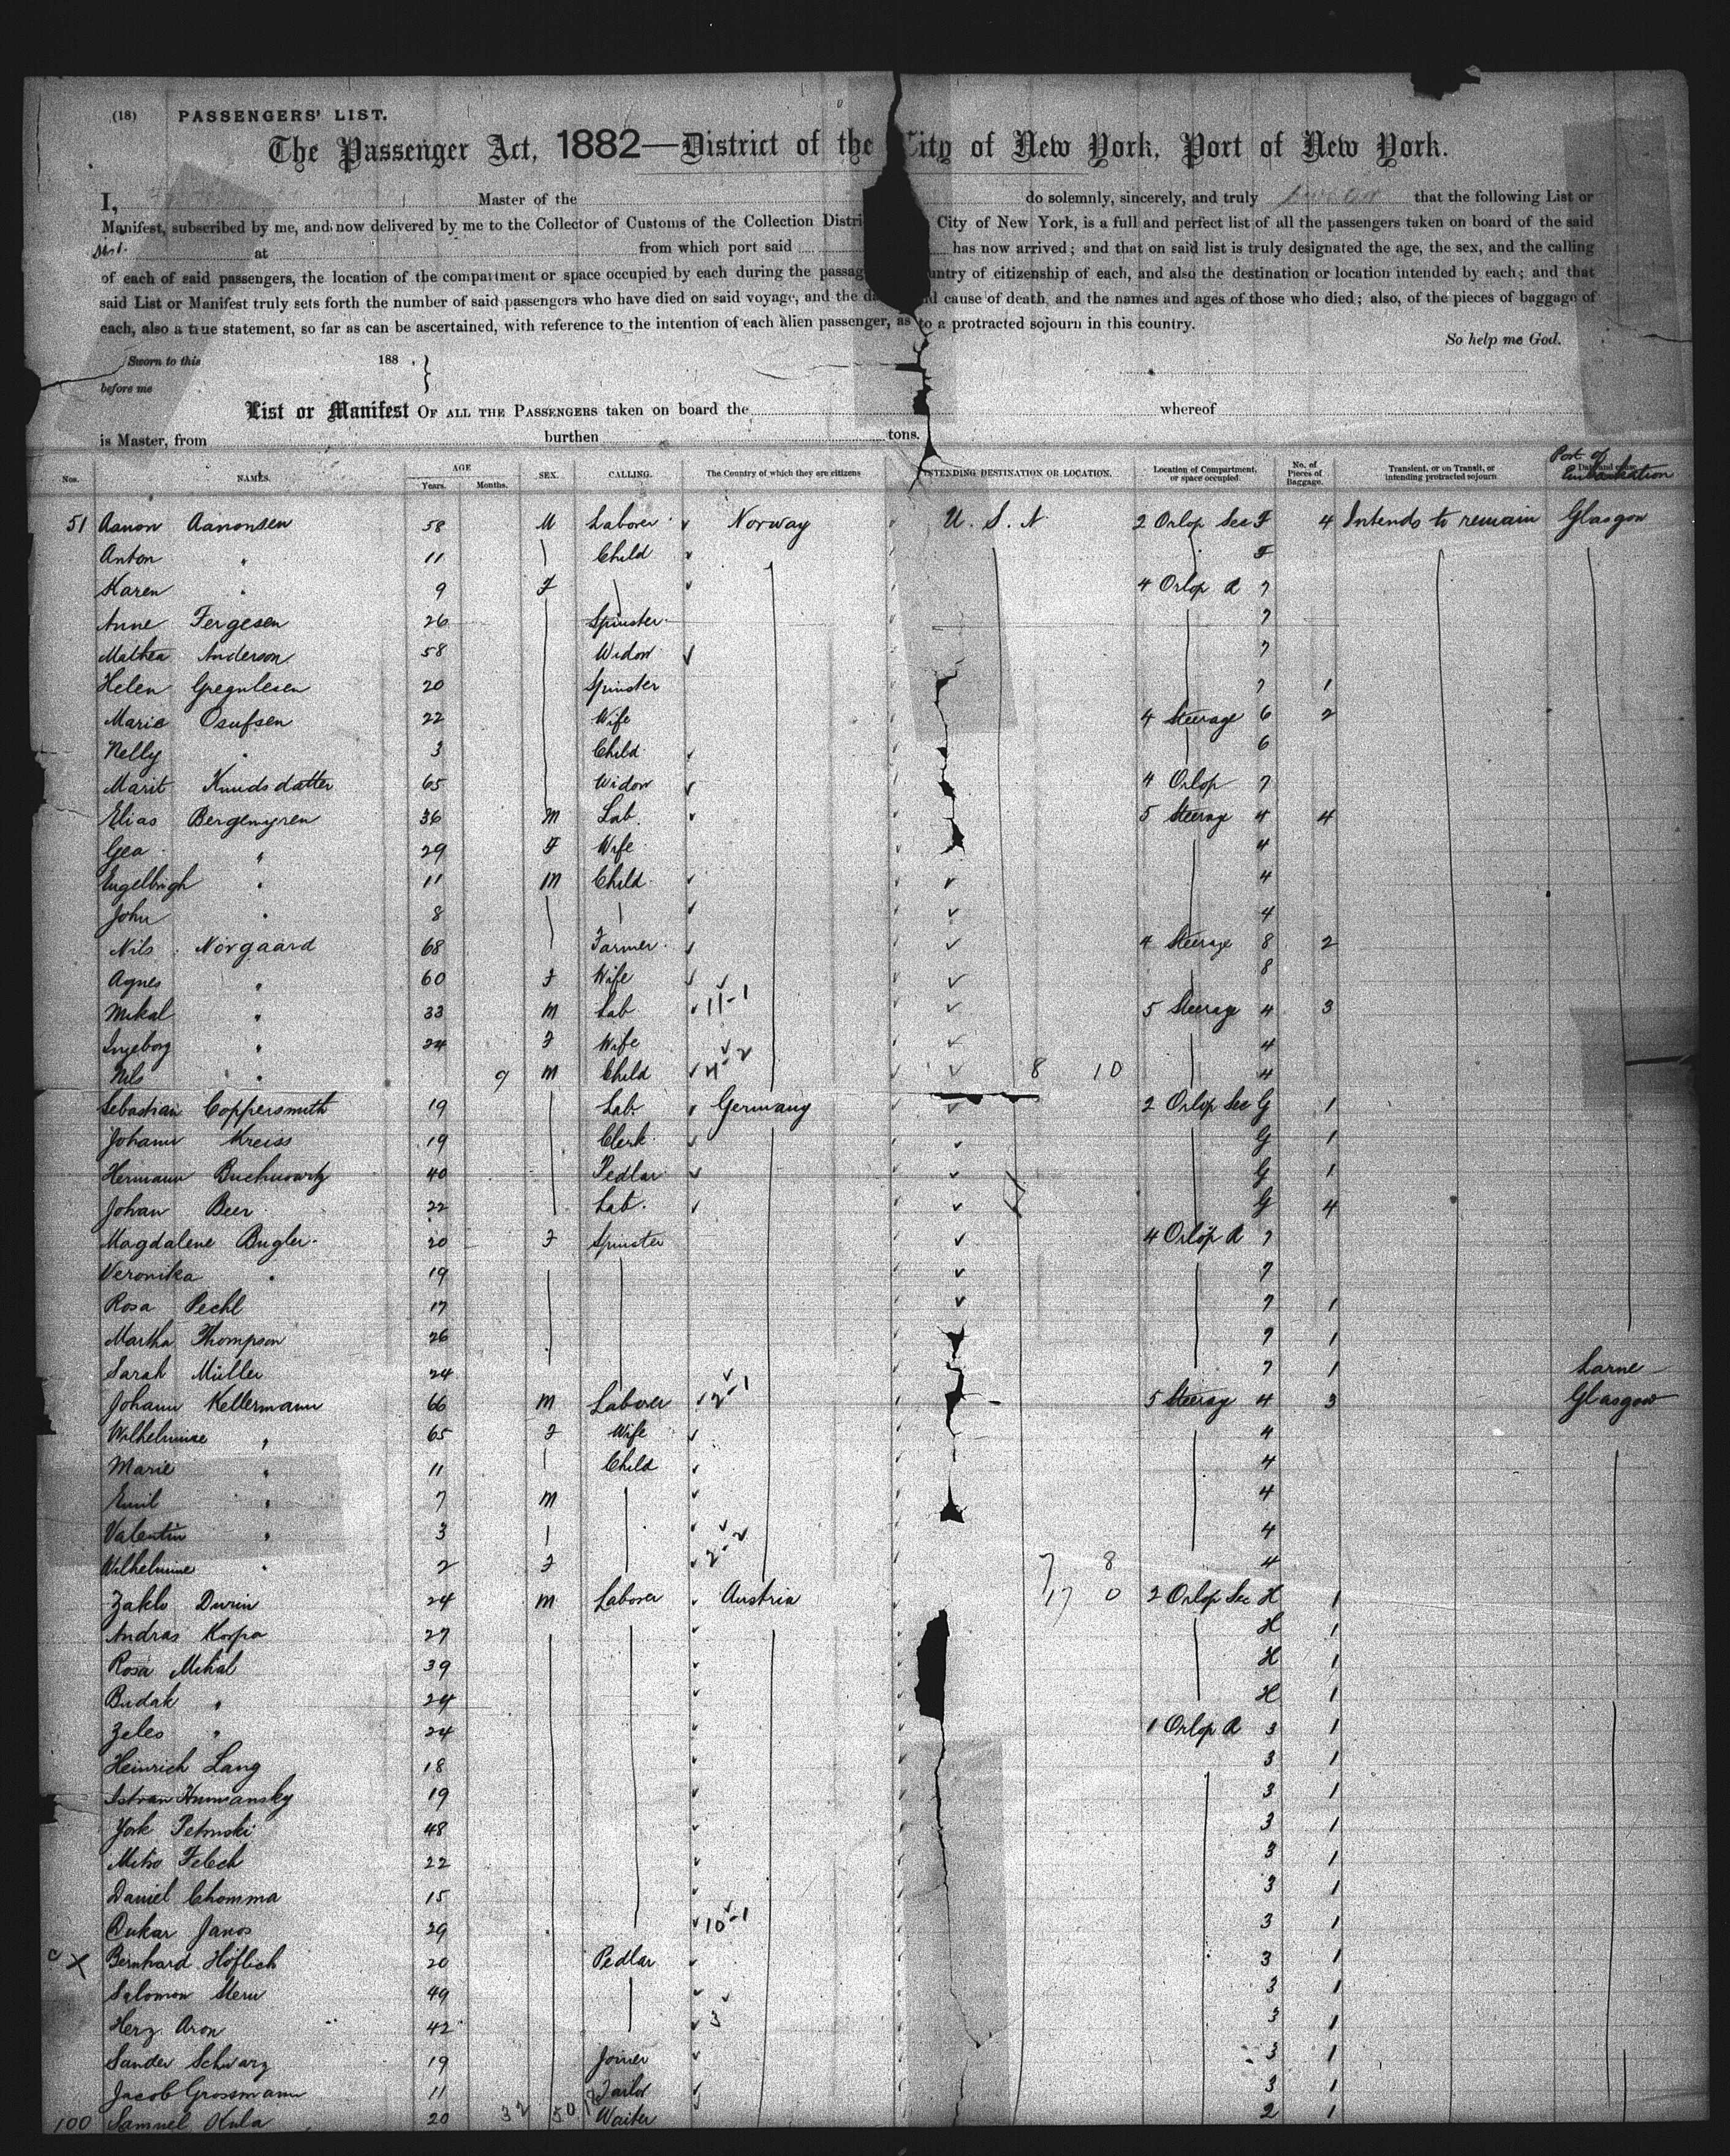 (18) PASSENGERS' LIST.
The Passenger Act, 1882—District of the City of New York, Port of New York.
I, Master of the do solemnly, sincerely, and truly swear that the following List or
Manifest, subscribed by me, and now delivered by me to the Collector of Customs of the Collection Distri City of New York, is a full and perfect list of all the passengers taken on board of the said
at from which port said has now arrived; and that on said list is truly designated the age, the sex, and the calling
of each of said passengers, the location of the compartment or space occupied by each during the passag untry of citizenship of each, and also the destination or location intended by each; and that
said List or Manifest truly sets forth the number of said passengers who have died on said voyage, and the da d cause of death, and the names and ages of those who died; also, of the pieces of baggage of
each, also a true statement, so far as can be ascertained, with reference to the intention of each alien passenger, as to a protracted sojourn in this country.
So help me God.
Sworn to this 188 .
before me
List or Manifest OF ALL THE PASSENGERS taken on board the whereof
is Master, from burthen tons.
Nos. NAMES. AGE Years. Months. SEX. CALLING. The Country of which they are citizens INTENDING DESTINATION OR LOCATION. Location of Compartment, or space occupied. No. of Pieces of Baggage. Transient, or on Transit, or intending protracted sojourn Port of Embarkation
51 Aanon Aanonsen 58 M Laborer Norway U. S. N. 2 Orlop Sec F 4 Intends to remain Glasgow
Anton " 11 Child F
Karen " 9 F 4 Orlop A 7
Anne Fergesen 26 Spinster 7
Mathea Anderson 58 Widow 7
Helen Gregulesen 20 Spinster 7 1
Marie Osufsen 22 Wife 4 Steerage 6 2
Nelly " 3 Child 6
Marit Knudsdatter 65 Widow 4 Orlop 7
Elias Bergemyren 36 M Lab. 5 Steerage 4 4
Gea " 29 F Wife 4
Engelbrigh " 11 M Child 4
John " 8 4
Nils Norgaard 68 Farmer 4 Steerage 8 2
Agnes " 60 F Wife 8
Mikal " 33 M Lab 11-1 5 Steerage 4 3
Ingeborg " 24 F Wife 4
Nils " 9 M Child 4-2 8 10 4
Sebastian Coppersmith 19 Lab. Germany 2 Orlop Sec G 1
Johann Kreiss 19 Clerk G 1
Hermann Buchwartz 40 Pedlar G 1
Johan Beer 22 Lab. G 4
Magdalene Bugler 20 F Spinster 4 Orlop A 7
Veronika " 19 7
Rosa Pechl 17 7 1
Martha Thompson 26 7 1
Sarah Müller 24 7 1 Larne
Johann Kellermann 66 M Laborer 12-1 5 Steerage 4 3 Glasgow
Wilhelmine " 65 F Wife 4
Marie " 11 Child 4
Emil " 7 M 4
Valentin " 3 4
Wilhelmine " 2 F 2-2 7 8 4
Zaklo Durin 24 M Laborer Austria 17 0 2 Orlop Sec H 1
Andras Korpa 27 H 1
Rosa Mihal 39 H 1
Budak " 24 H 1
Zeles " 24 1 Orlop A 3 1
Heinrich Lang 18 3 1
Istvan Humansky 19 3 1
York Petruski 48 3 1
Mitro Felech 22 3 1
Daniel Chomma 15 3 1
Dukar Janos 29 10-1 3 1
X Bernhard Höflich 20 Pedlar 3 1
Salomon Stern 49 3 1
Herz Aron 42 3 3 1
Sander Schwarz 19 Joiner 3 1
Jacob Grossmann 11 Tailor 3 1
100 Samuel Kula 20 32 50 18 Waiter 2 1